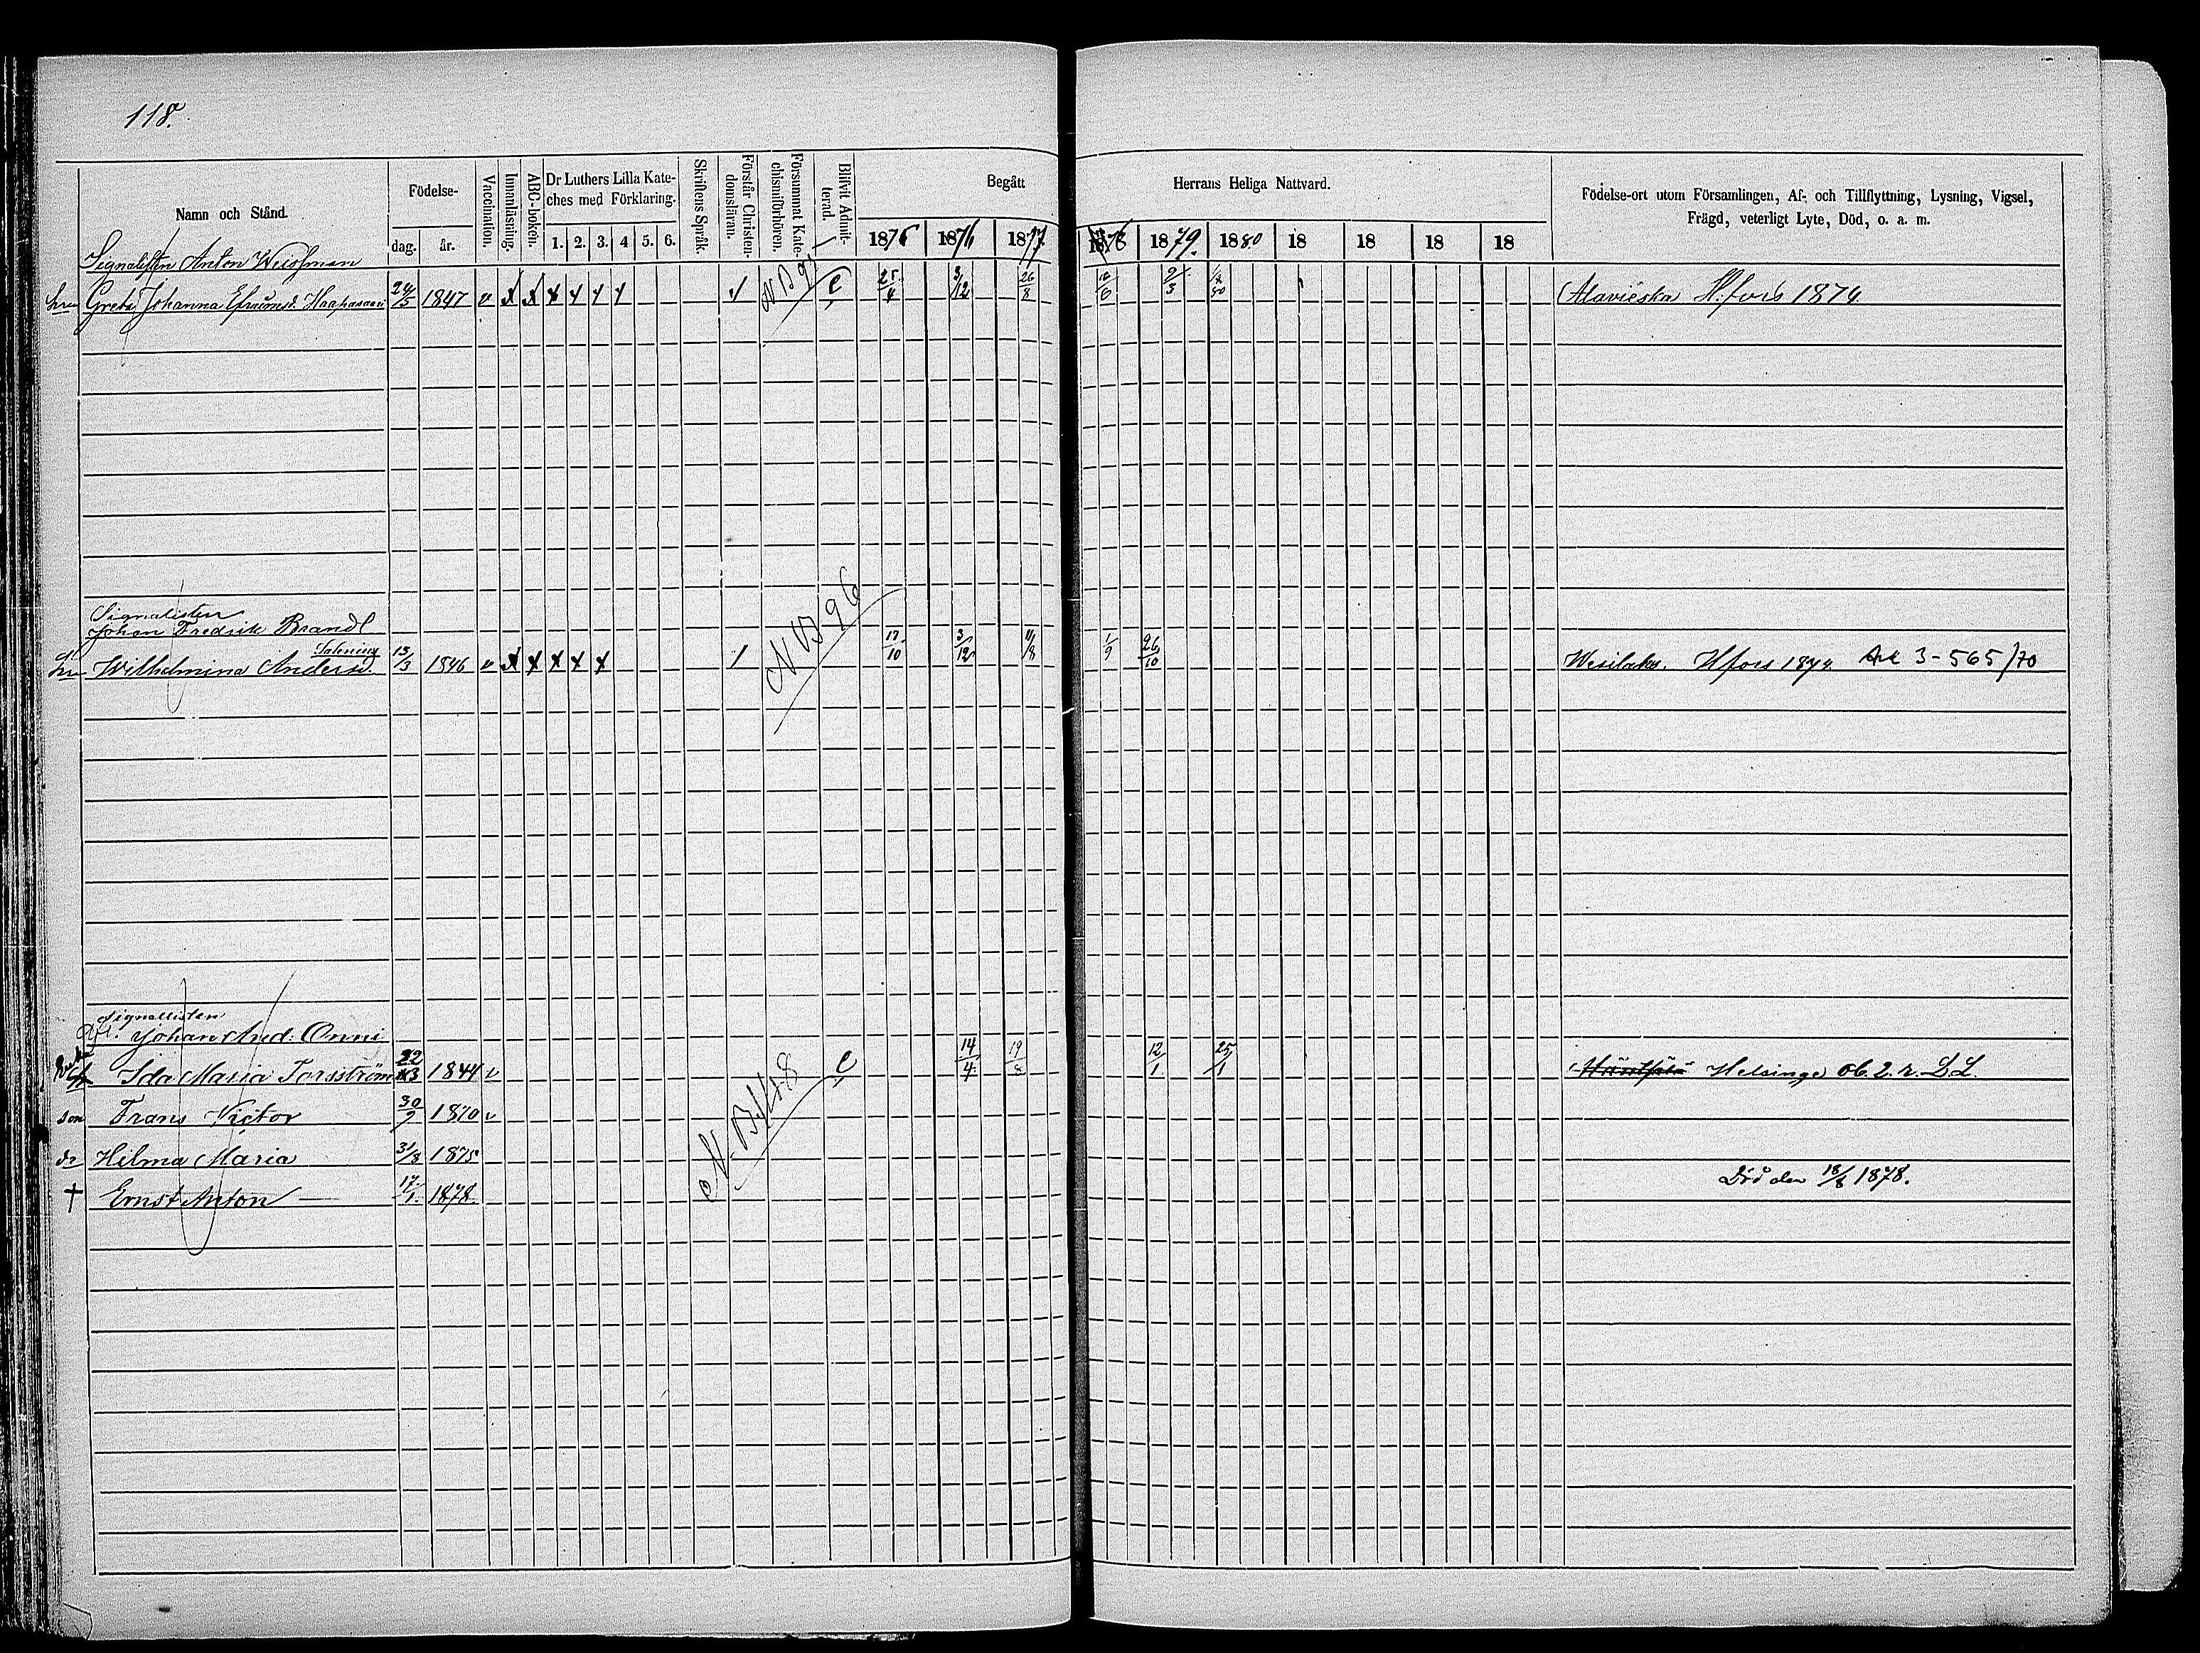 118.
Namn och Stånd.
Födelse-
dag. år.
Vaccination.
Innanläsning.
ABC-boken.
Dr Luthers Lilla Kate-
ches med Förklaring.
1. 2. 3. 4 5. 6.
Skriftens Språk.
Förstår Christen-
domsläran.
Försummat Kate-
chismiförhören.
Blifvit Admit-
terad.
Begått
1875 1876 1877
Herrans Heliga Nattvard.
1878 1879. 1880 18 18 18 18
Födelse-ort utom Församlingen, Af- och Tillflyttning, Lysning, Vigsel,
Frägd, veterligt Lyte, Död, o. a. m.
Signalisten Anton Weissman
Greta Johanna Haapasaari 24/5 1847 v x x x x x x / C 25/4 3/12 26/8 9/3 Alavieska H:fors 1874
NB 96
Signalisten
Johan Fredrik Brandt
Wilhelmina Andersd. 13/3 1846 v x x x x x / 17/10 3/12 11/8 1/9 26/10 Wesilaks. Hfors 1874. 3-565/70
N. B. 148
Signallisten
Johan And: Onni
Ida Maria Forsström 1844 v C 14/4 19/8 12/1 25/1 Helsinge ob. 2. r. LL.
son Frans Victor 30/9 1870 v
dr Hilma Maria 31/8 1875
† Ernst Anton — 17/1. 1878. Död den 18/8 1878.